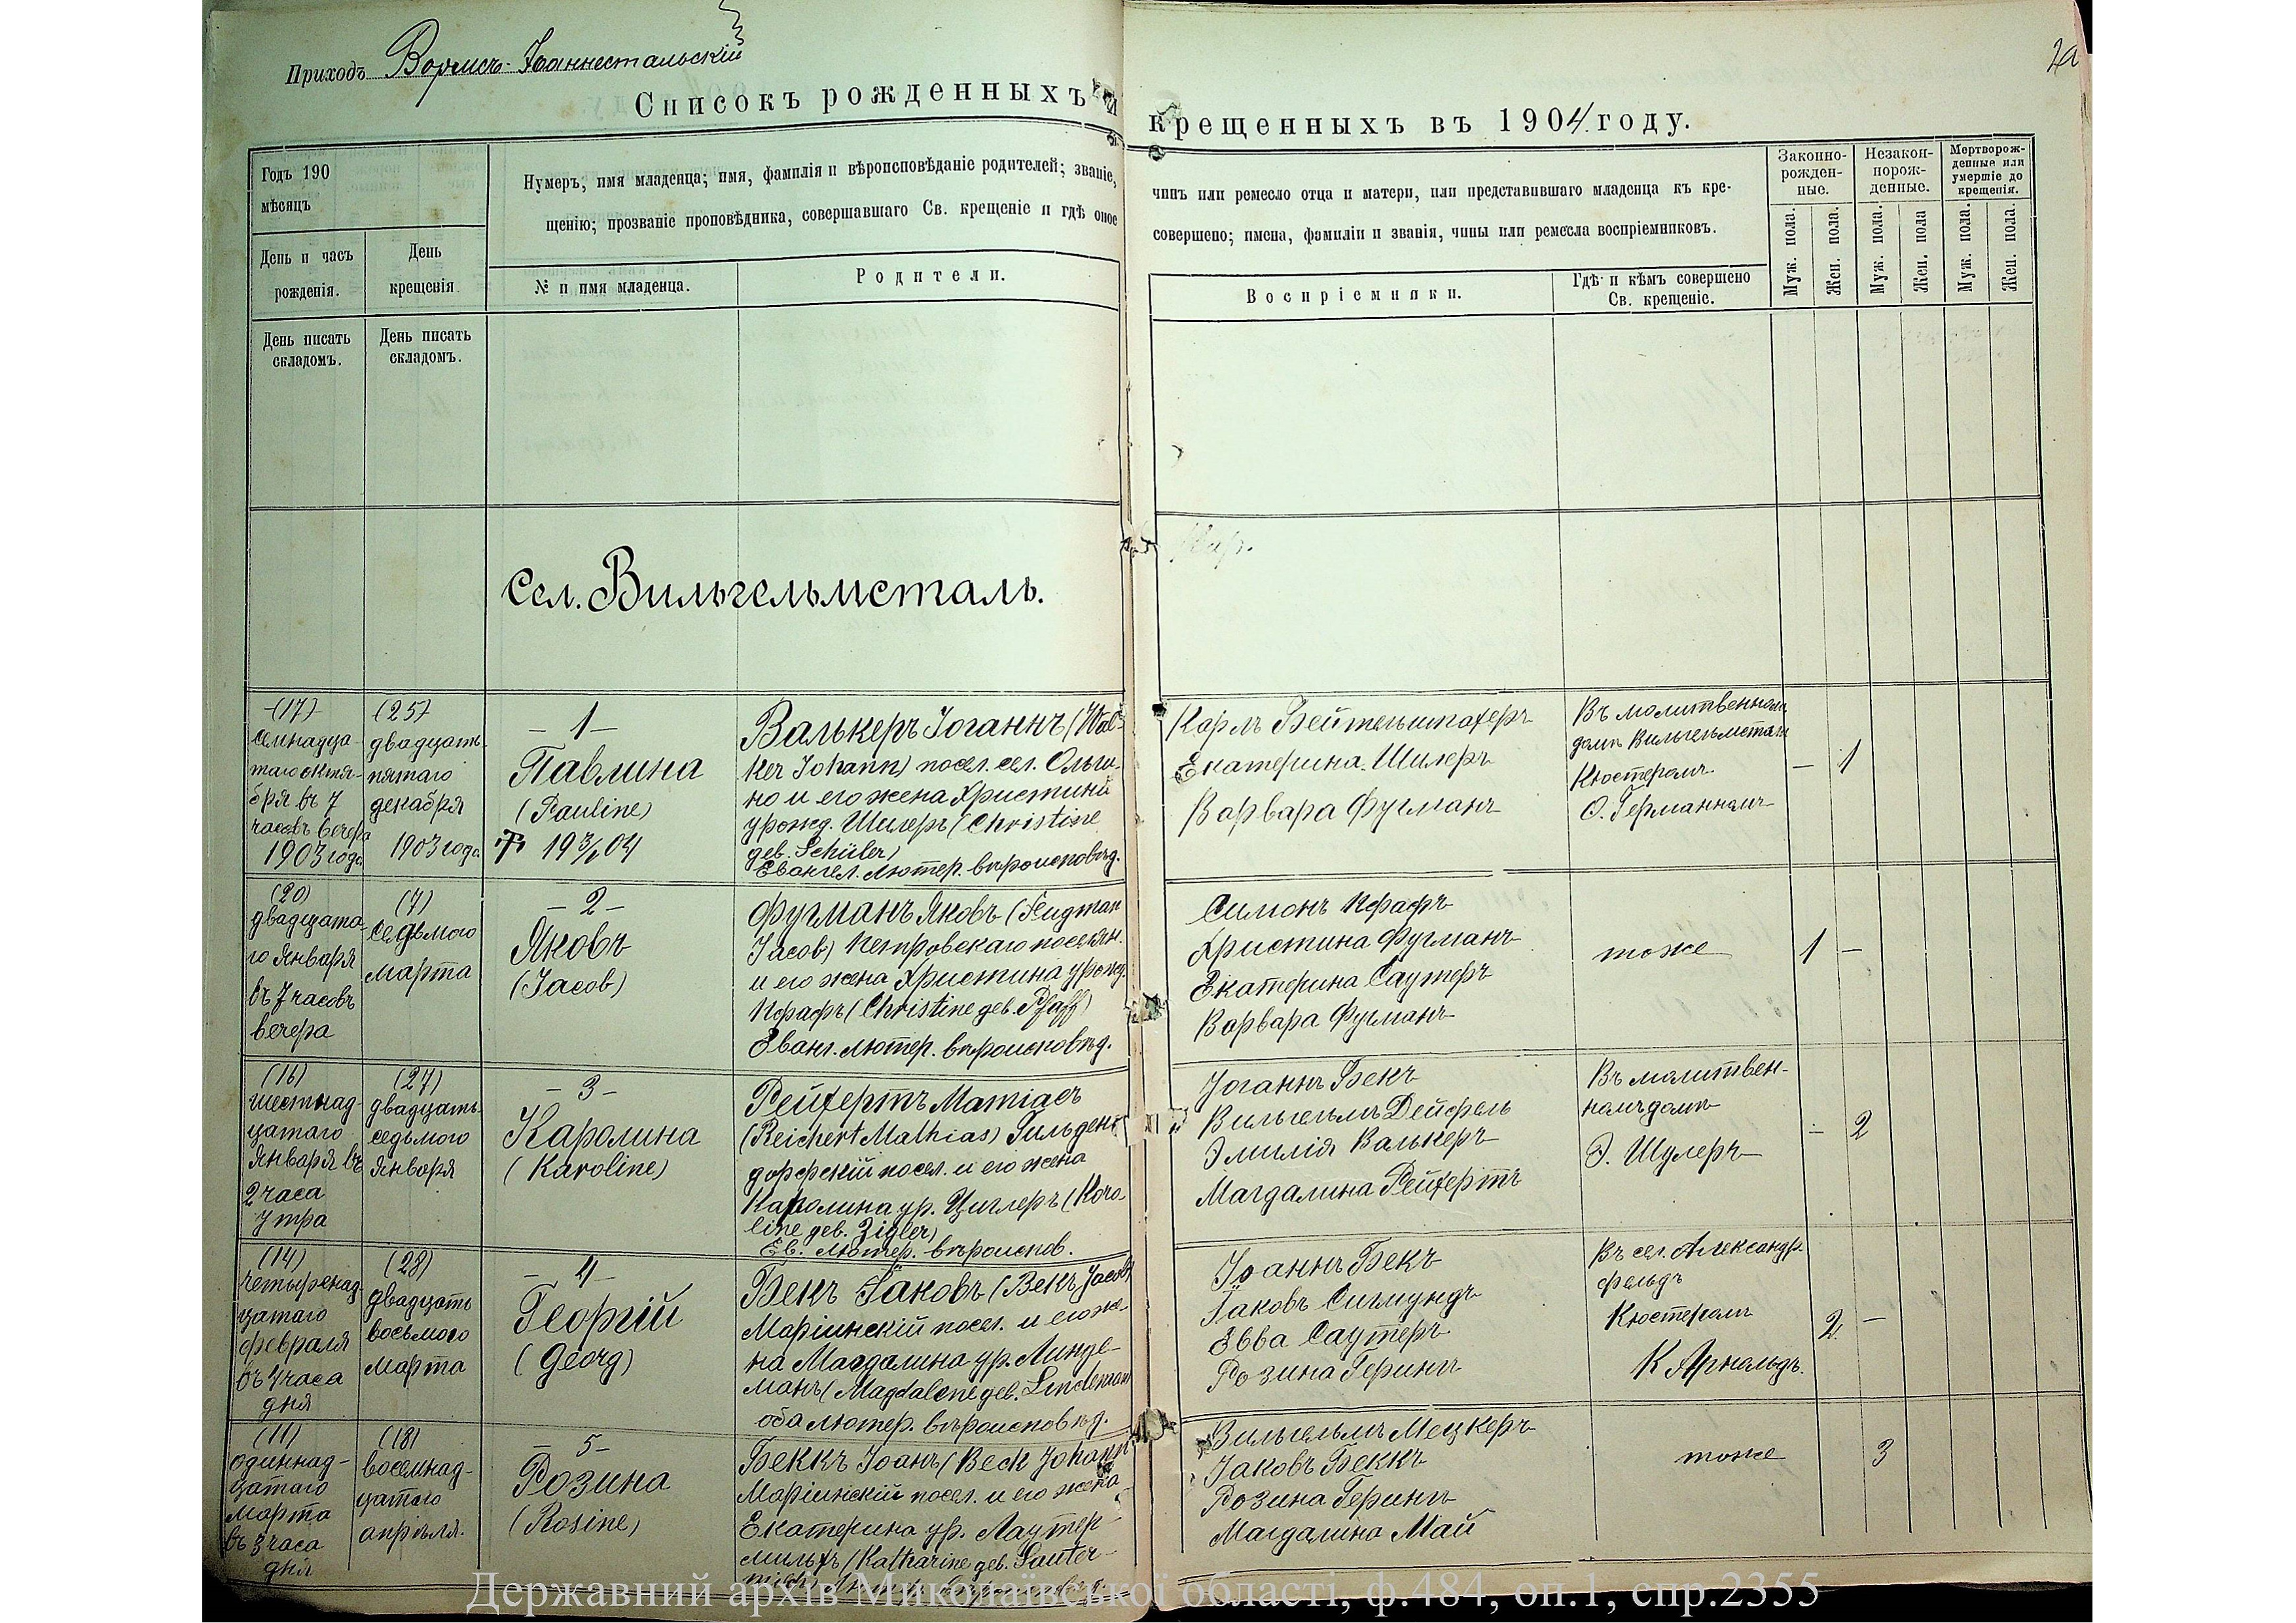 Приходъ Вормсъ-Іоаннестальскій
2а
Списокъ рожденныхъ и крещенныхъ въ 1904 году.
Годъ 190
мѣсяцъ
День и часъ
рожденія.
День
крещенія
Нумеръ, имя младенца; имя, фамилія и вѣроисповѣданіе родителей; званіе,
щенію; прозваніе проповѣдника, совершавшаго Св. крещеніе и гдѣ оное
№ и имя младенца.
Родители.
чинъ или ремесло отца и матери, или представившаго младенца къ кре-
совершено; имена, фамиліи и званія, чины или ремесла воспріемниковъ.
Воспріемники.
Гдѣ и кѣмъ совершено
Св. крещеніе.
Законно-
рожден-
ные.
Незакон-
норож-
денные.
Мертворож-
денные или
умершіе до
крещенія.
Муж. пола.
Жен. пола.
Муж. пола.
Жен. пола
Муж. пола.
Жен. пола.
День писать
складомъ.
День писать
складомъ.
Сел. Вильгельмсталь.
(17)
семнадца
таго октя-
бря въ 7
часовъ вечера
1903 года
(25)
двадцать
пятаго
декабря
1903 года
-1-
Павлина
(Pauline)
19 3/1 04
Валькеръ Іоганнъ (Wal-
ker Johann) посел. сел. Ольги-
но и его жена Христина
урожд. Шилеръ (Christine
geb. Schüler)
Евангел. лютер. вѣроисповѣд.
Карлъ Бейтельштахеръ
Екатерина Шилеръ
Варвара Фугманъ
Въ молитвенном
домѣ Вильгельмсталь
Кюстеромъ
О. Германномъ
— 1
(20)
двадцата-
го Января
въ 7 часовъ
вечера
(7)
седьмого
марта
-2-
Яковъ
(Jacob)
Фугманъ Яковъ (Fugman
Jacob) Петровскаго поселян.
и его жена Христина урожд.
Пфафъ (Christine geb. Pfaff)
Еванг. лютер. вѣроисповѣд.
Симонъ Пфафъ
Христина Фугманъ
Екатерина Саутеръ
Варвара Фугманъ
тоже
1 —
(16)
шестнад-
цатаго
Января въ
2 часа
утра
(27)
двадцать
седьмого
Января
-3-
Каролина
(Karoline)
Рейхертъ Матіасъ
(Reichert Mathias) Гильден-
дорфскій посел. и его жена
Каролина ур. Циглеръ (Karo
line geb. Zigler)
Ев. лютер. вѣроиспов.
Іоганнъ Бекъ
Вильгельмъ Дейфель
Эмилія Валькеръ
Магдалина Рейхертъ
Въ молитвен-
номъ домѣ
Э. Шулеръ
— 2
(14)
четырнад-
цатаго
февраля
въ 4 часа
дня
(28)
двадцать
восьмого
марта
-4-
Георгій
(Georg)
Бекъ Іаковъ (Бекъ Jacob)
Маріинскій посел. и его же-
на Магдалина ур. Линде-
манъ (Magdalene geb. Lindeman
оба лютер. вѣроисповѣд.
Іоаннъ Бекъ
Іаковъ Сигмундъ
Эвва Саутеръ
Розина Герингъ
Въ сел. Александр.
фельдъ
Кюстеромъ
К Арнольдъ.
2 —
(11)
одиннад-
цатаго
марта
въ 3 часа
дня
(18)
восемнад-
цатаго
апрѣля.
-5-
Розина
(Rosine)
Беккъ Іоанъ (Beck Johann
Маріинскій посел. и его жена
Екатерина ур. Лаутер-
мильхъ (Katharine geb. Lauter-
milch)
Вильгельмъ Мецкеръ
Іаковъ Беккъ
Розина Герингъ
Магдалина Май
тоже
3
Державний архів Миколаївської області, ф.484, оп.1, спр.2355